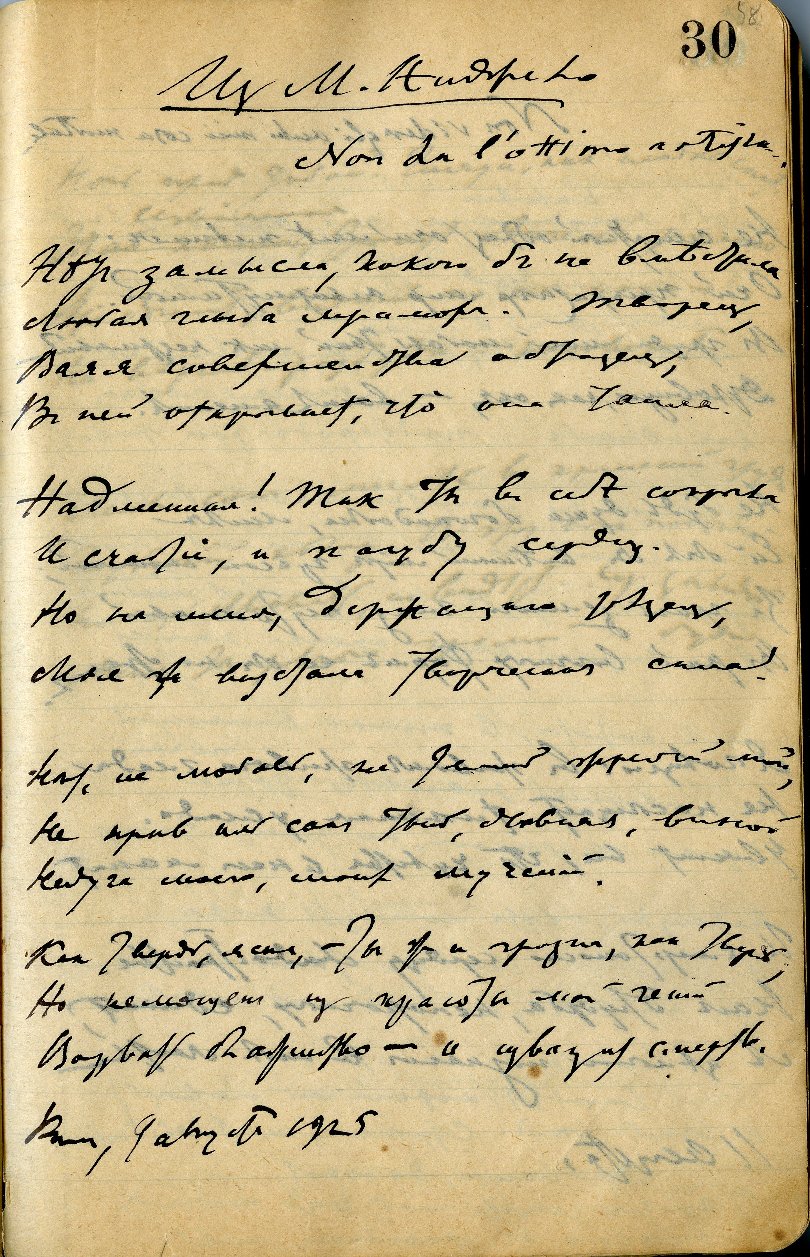 30
58
Из М. Анджело
Non ha l'ottimo artista..
Нѣт замысла, какого бъ не вмѣстила
Любая глыба мрамора. Творец,
Ваяя совершенства образец,
Въ ней открывает, что она таила.
Надменная! Так Ты в себѣ сокрыла
И счастье, и пагубу сердец.
Но на меня, держащаго рѣзец,
Моя ж возстала творческая сила!
Нѣт, не любовь, не жребий мой,
Не гнѣв иль Твой, дивная, виной
Недуга моего, моих мучений.
Как твердь, ясна, – Ты ж и грозна, как твердь,
Но немощен из красоты мой гений
Воззвать блаженство — и изваял смерть.
Рим, 9 август 1925